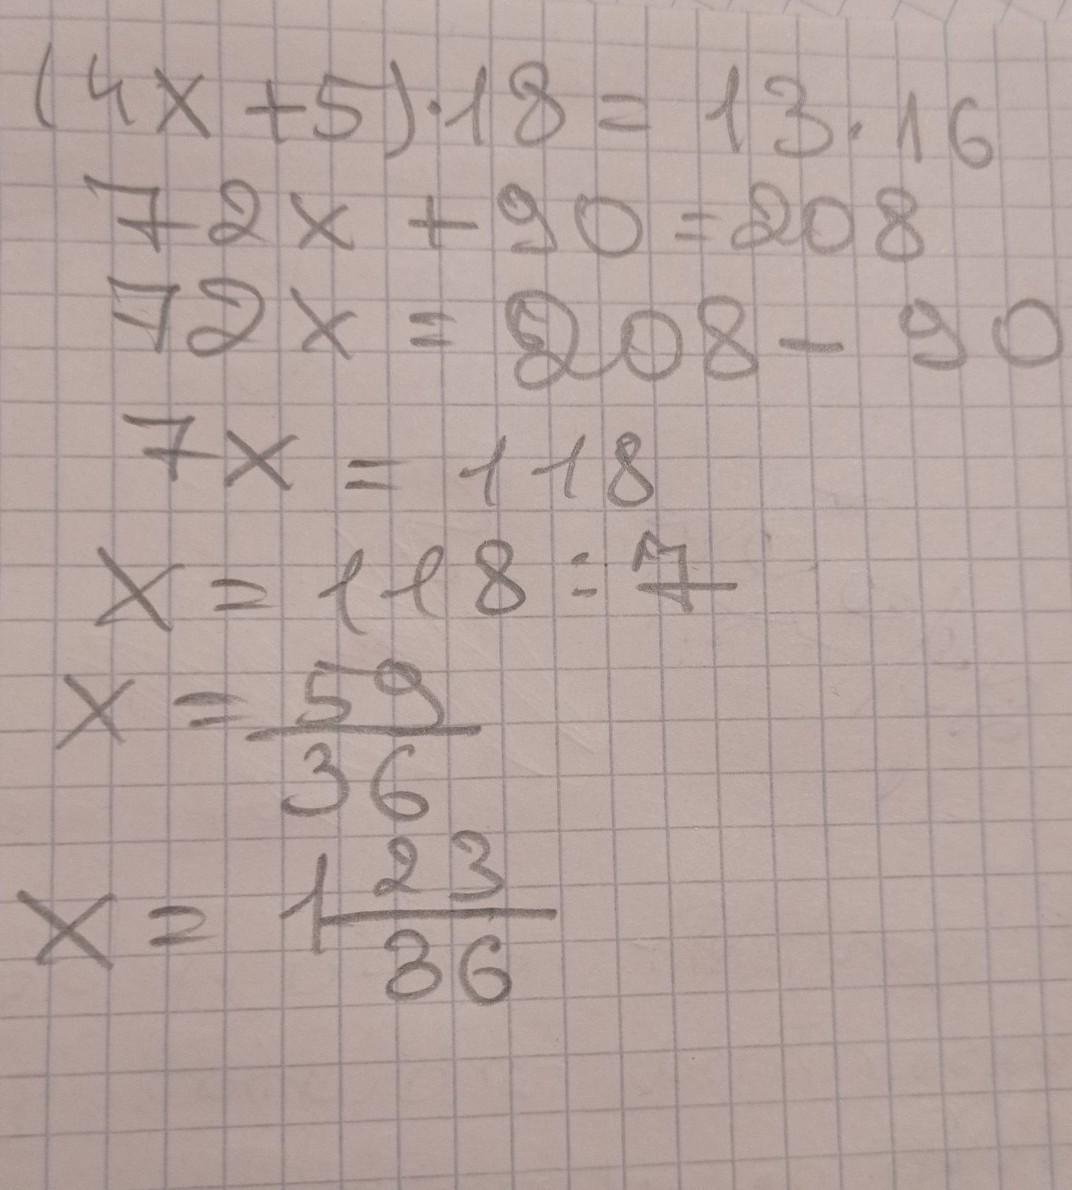 (4x+5)·18=13·16
72x+90=208
72x=208-90
7x=118
x=118:7
x=59/36
x=1 23/36